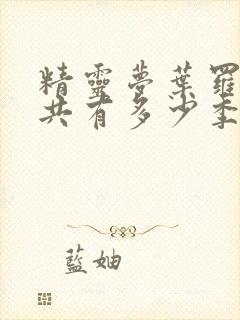 精靈夢葉羅
共有多少季
藍妯